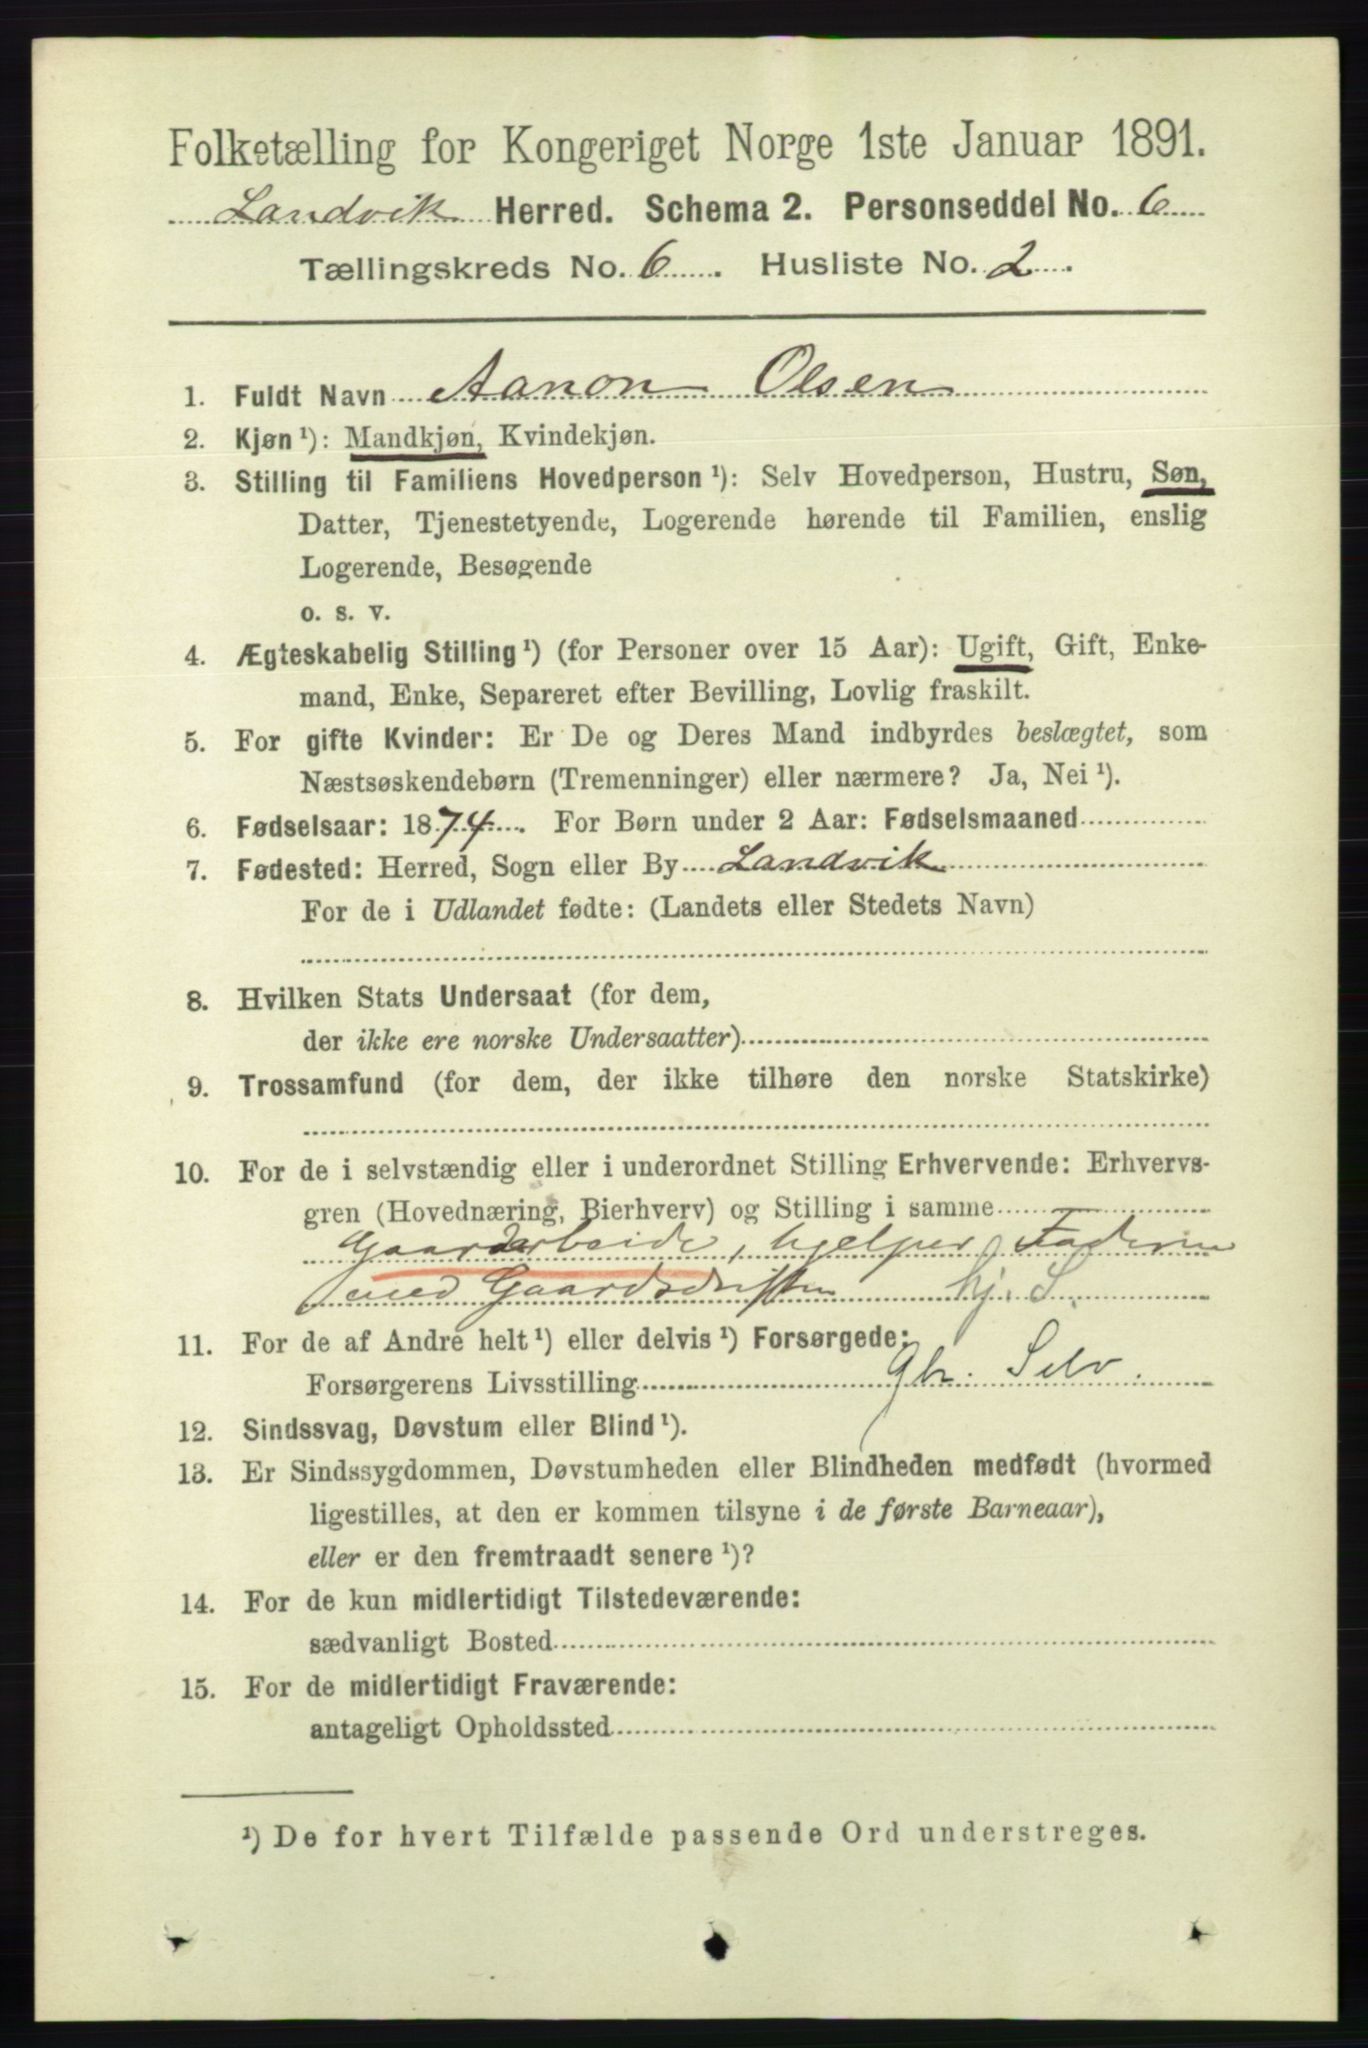 Folketælling for Kongeriget Norge 1ste Januar 1891.
Landvik Herred. Schema 2. Personseddel No. 6
Tællingskreds No. 6. Husliste No. 2.
1. Fuldt Navn Aanon Olsen
2. Kjøn ¹): Mandkjøn, Kvindekjøn.
3. Stilling til Familiens Hovedperson ¹): Selv Hovedperson, Hustru, Søn,
Datter, Tjenestetyende, Logerende hørende til Familien, enslig
Logerende, Besøgende
o. s. v.
4. Ægteskabelig Stilling ¹) (for Personer over 15 Aar): Ugift, Gift, Enke-
mand, Enke, Separeret efter Bevilling, Lovlig fraskilt.
5. For gifte Kvinder: Er De og Deres Mand indbyrdes beslægtet, som
Næstsøskendebørn (Tremenninger) eller nærmere? Ja, Nei ¹).
6. Fødselsaar: 1874. For Børn under 2 Aar: Fødselsmaaned
7. Fødested: Herred, Sogn eller By Landvik
For de i Udlandet fødte: (Landets eller Stedets Navn)
8. Hvilken Stats Undersaat (for dem,
der ikke ere norske Undersaatter)
9. Trossamfund (for dem, der ikke tilhøre den norske Statskirke)
10. For de i selvstændig eller i underordnet Stilling Erhvervende: Erhvervs-
gren (Hovednæring, Bierhverv) og Stilling i samme
Gaardarbeide, hjelper Faderen
med Gaardsdriften hj. S.
11. For de af Andre helt ¹) eller delvis ¹) Forsørgede:
Forsørgerens Livsstilling Gbr. Selv.
12. Sindssvag, Døvstum eller Blind ¹).
13. Er Sindssygdommen, Døvstumheden eller Blindheden medfødt (hvormed
ligestilles, at den er kommen tilsyne i de første Barneaar),
eller er den fremtraadt senere ¹)?
14. For de kun midlertidigt Tilstedeværende:
sædvanligt Bosted
15. For de midlertidigt Fraværende:
antageligt Opholdssted
¹) De for hvert Tilfælde passende Ord understreges.